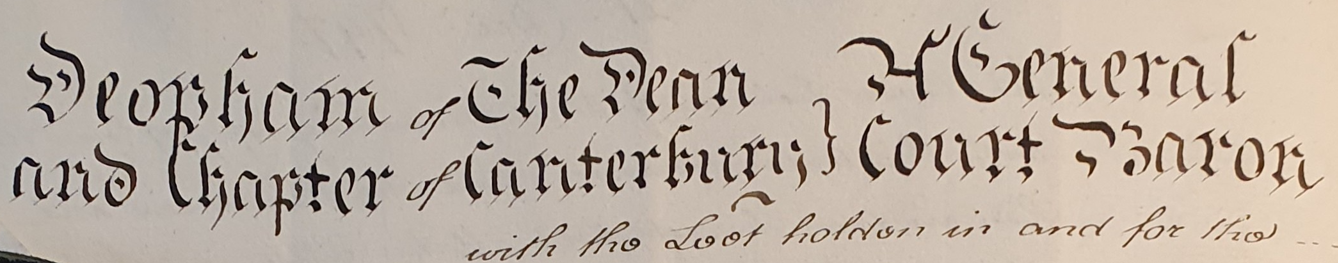 Deopham of The Dean } A General
and Chapter of Canterbury } Court Baron
with the Leet holden in and for the ...